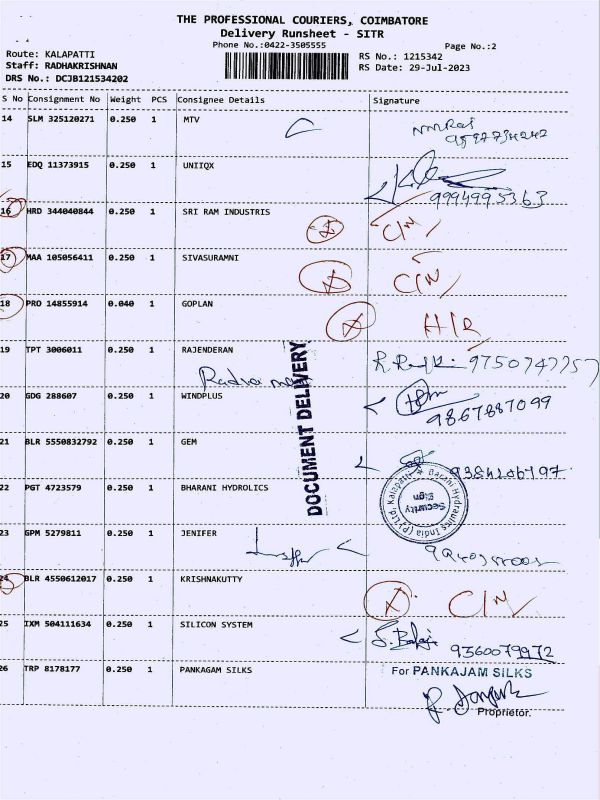 THE PROFESSIONAL COURIERS, COIMBATORE
Delivery Runsheet - SITR
Phone No.:0422-3505555
Page No.:2
Route: KALAPATTI
RS No.: 1215342
Staff: RADHAKRISHNAN
RS Date: 29-Jul-2023
DRS No.: DCJB121534202
S No Consignment No Weight PCS Consignee Details Signature
14 SLM 325120271 0.250 1 MTV
15 EDQ 11373915 0.250 1 UNIIQX
9994995363
16 HRD 344040844 0.250 1 SRI RAM INDUSTRIS C/N
17 MAA 105056411 0.250 1 SIVASURAMNI C/N
18 PRO 14855914 0.040 1 GOPLAN
19 TPT 3006011 0.250 1 RAJENDERAN
20 GDG 288607 0.250 1 WINDPLUS
9867887099
21 BLR 5550832792 0.250 1 GEM
DOCUMENT DELIVERY
22 PGT 4723579 0.250 1 BHARANI HYDROLICS
Barani Hydraulics India (P) Ltd, Kalapatti
Security Sign
23 GPM 5279811 0.250 1 JENIFER
24 BLR 4550612017 0.250 1 KRISHNAKUTTY C/N
25 IXM 504111634 0.250 1 SILICON SYSTEM S. Balaji
9360079972
26 TRP 8178177 0.250 1 PANKAGAM SILKS
For PANKAJAM SILKS
Proprietor.